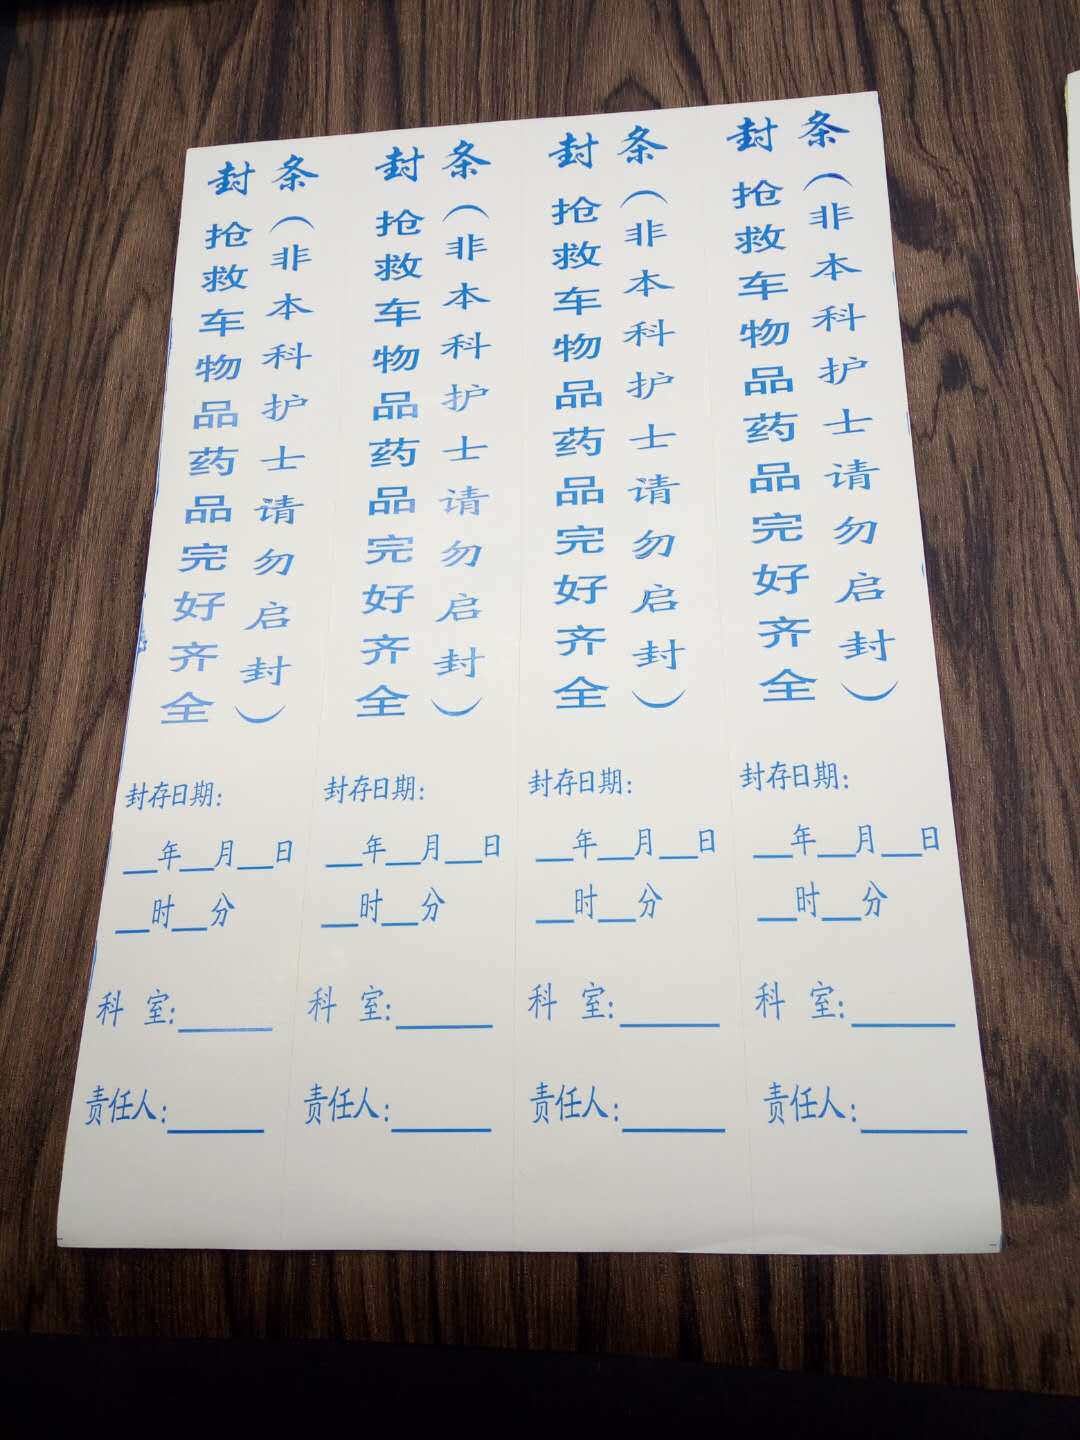 封条
抢救车物品药品完好齐全
（非本科护士请勿启封）
封存日期：
__年__月__日
__时__分
科 室：____
责任人：____
封条
抢救车物品药品完好齐全
（非本科护士请勿启封）
封存日期：
__年__月__日
__时__分
科 室：____
责任人：____
封条
抢救车物品药品完好齐全
（非本科护士请勿启封）
封存日期：
__年__月__日
__时__分
科 室：____
责任人：____
封条
抢救车物品药品完好齐全
（非本科护士请勿启封）
封存日期：
__年__月__日
__时__分
科 室：____
责任人：____